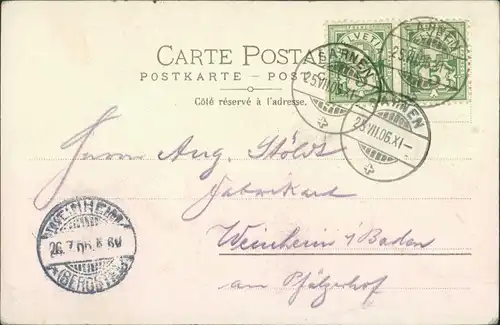 CARTE POSTA
POSTKARTE – POST
Côté réservé à l'adresse.
HELVETIA
5
5
SARNEN
25.VII.06.XI–
SARNEN
25.VII.06.XI–
Herrn Aug. Stöldt
Fabrikant
Weinheim i/Baden
am Pfälzerhof
WEINHEIM
26.7.06.8
(BERGSTR.)